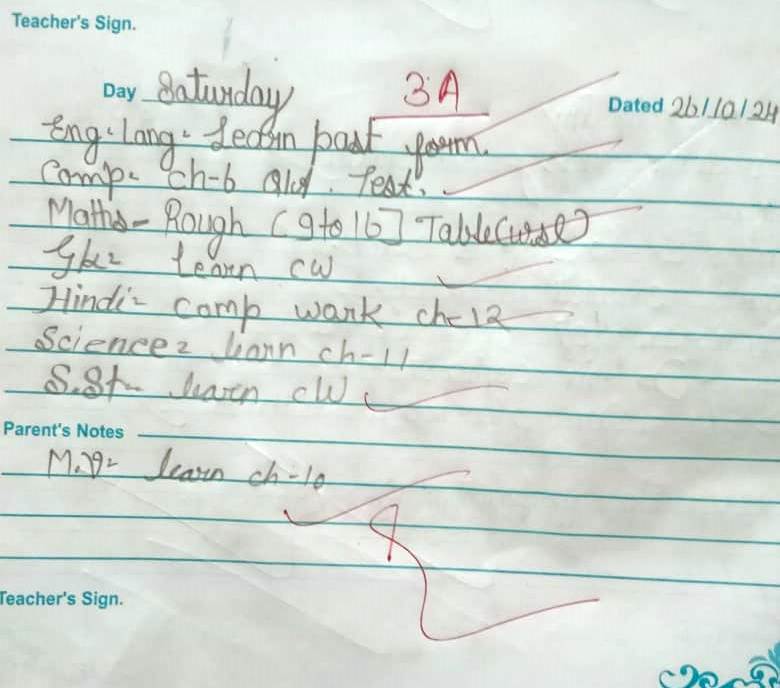 Teacher's Sign.
Day Saturday 3A Dated 26/10/24
Eng-lang- Learn past form.
Comp- ch-6 Test.
Maths- Rough [9 to 16] Table
Gk- Learn CW
Hindi- comp wark ch-12
Science- learn ch-11
S.St- learn CW
Parent's Notes
M.V- learn ch-10
Teacher's Sign.